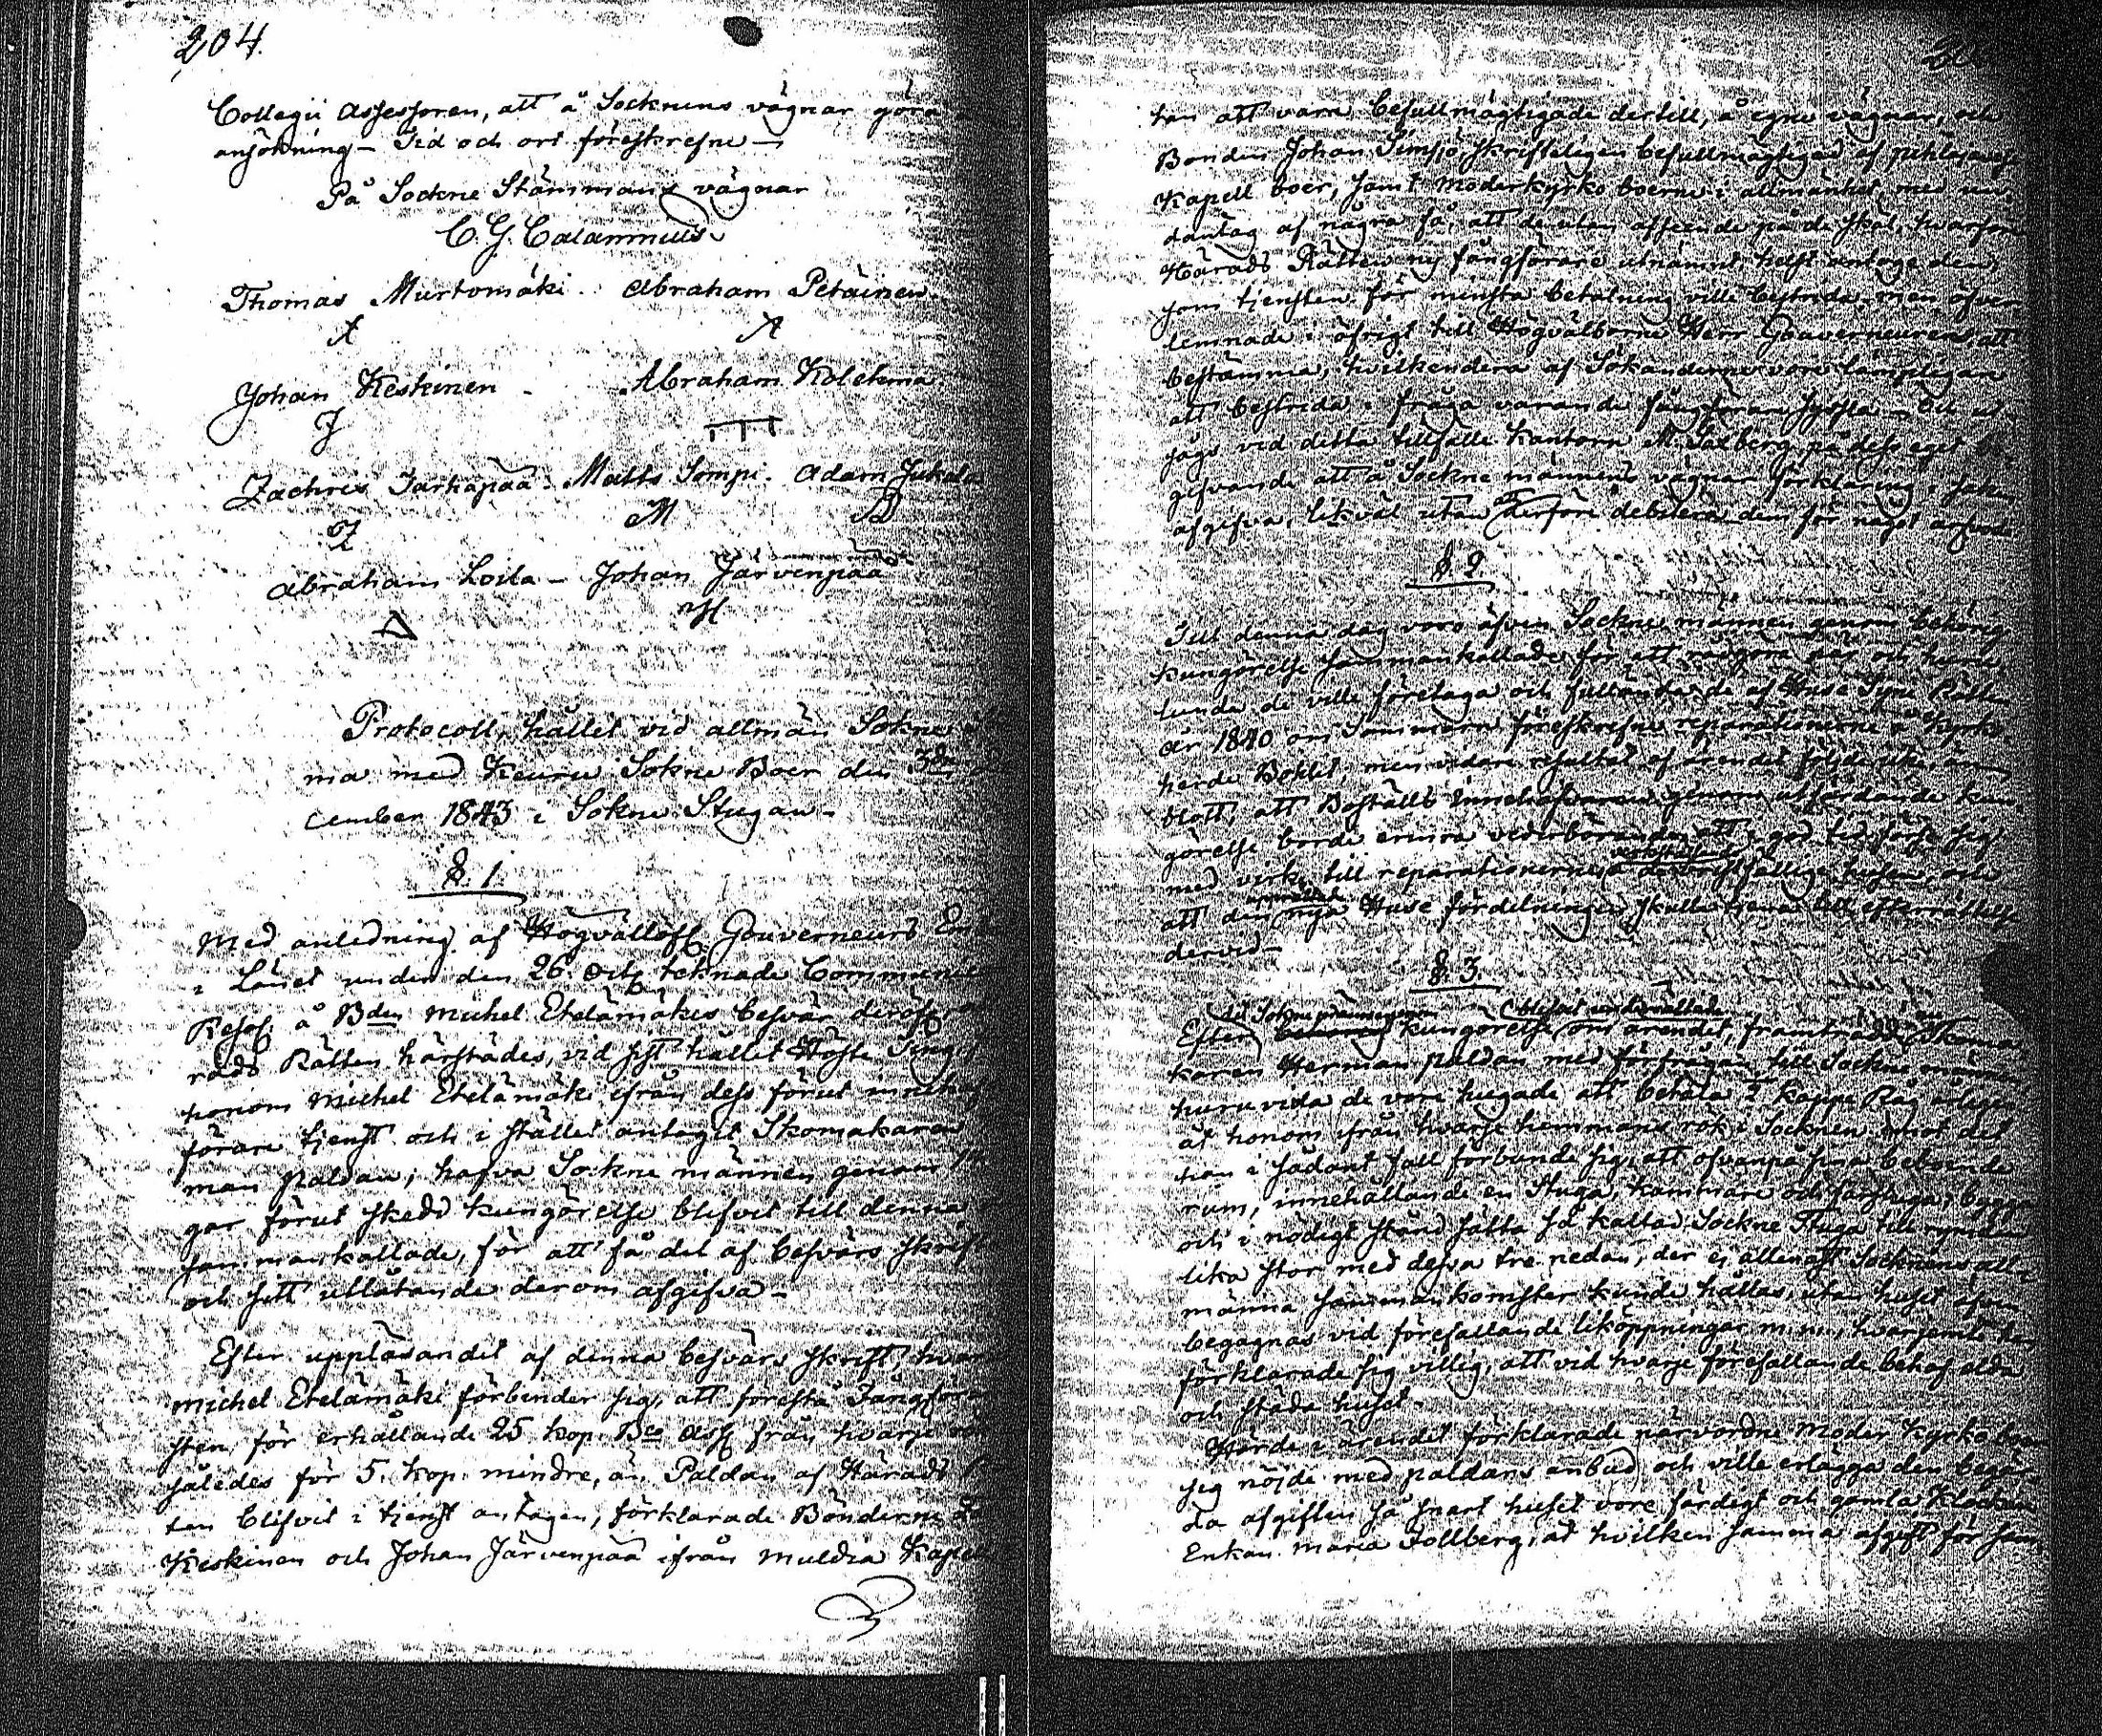 204.
Collegii Assessoren, att å Socknens vägnar göra
ansökning – Tid och ort föreskrefne –
På Sockne Stämmans vägnar
C. G. Calamnius.
Thomas Murtomäki. Abraham Petäinen.
Johan Keskinen – Abraham Kolehma
J
Zachris Tarhapää. Matts Sompi. Adam Jukola
Z M
Abraham Loila – Johan Järvenpää
Protocoll, hållit vid allmän Sokne
ma med Keuru Sokne Boer den 3die
cember 1843 i Sokne Stugan –
§. 1.
Med anledning af Högvällofl. Gouverneurs
i Länet under den 26. Octb. teknade Commun
Resol. å Bden Michel Etelämäkis besvär deröfver
rads Rätten härstädes, vid sist hållet Höste Ting
honom Michel Etelämäki ifrån dess förut inneh
förare tjenst och i stället antagit Skomakaren
man Paldan; hafva Sockne männen genom
gor förut skedd kungörelse blifvit till denna
sammankallade, för att få del af besvärs skrif
och sitt utlåtande derom afgifva –
Efter uppläsandet af denna besvärs skrift, hvar
Michel Etelämäki förbinder sig, att förestå Fångför
sten, för erhållande 25 kop. Bco Ass. från hvarje rök
således för 5. kop. mindre, än Paldan af Härads
ten blifvit i tjenst antagen, förklarade Bönderne
Keskinen och Johan Järvenpää ifrån Muldia Kapell
tan att vara befullmägtigade dertill, å egne vägnar, och
Bonden Johan Simsiö skrifteligen befullmägtigad af Pihlajavesi
Kapell boer, samt moderkyrko boerne i allmänhet med un
dantag af några få, att de utan afseende på de skäl, hvarföre
Härads Rätten ny fångförare utnämnt, helst antoge den,
som tjensten för minsta betalning ville bestrida, men öfver
lemnade i öfrigt till Högvälborne Herr Gouverneuren att
bestämma, hvilkendera af Sökanderne vore lämpligare
att bestrida i fråga varande fångförare syssla –
sägs vid detta tillfälle Kantorn M. Saxberg på dess eget
gifvande att å Sockne männens vägnar förklaring i saken
afgifva, likväl utan att derföre debitera dem för något arfvode
§. 2
Till denna dag voro äfven Sockne männen genom behörig
kungörelse sammankallade för att rådgöra när och huru
lunda de ville företaga och fulländande af Huse Syne Rätten
år 1840 om Sommaren föreskrefne reparationerne å Kyrko
herde Bohlet, men vidare resultat af ärendet följde icke än
blott, att Boställs Innehafvaren genom utfärdande kun
görelse borde erinra vederbörande, att i god tid förse sig
med virke till reparationernes verkställande å de bristfällige husen, och
att den upprättade nya Huse fördelningen skulle tjena till efterrättelse
dervid –
§. 3.
Efter kungörelse om ärendet, framträdde Skoma
karen Herman Paldan med förfrågan till Sockne männen
huruvida de vore hugade att betala 2 kappe Råg årligen
åt honom ifrån hvarje hemmans rök i Socknen emot det
han i sådant fall förbunde sig, att ofvanpå sina boende
rum, innehållande en Stuga, Kammare och farstuga, bygga
och i nödigt stånd sätta så kallad Sockne Stuga till rymden
lika stor med dessa tre nedan, der ej allenast Socknens all
männa sammankomster kunde hållas, utan huset äfven
begagnas vid förefallande liköppningar m.m., hvarjemte han
förklarade sig villig, att vid hvarje förefallande behof elda
och städa huset.
Hörde i ärendet förklarade närvordne Moder kyrko boer
sig nöjde med Paldans anbud och ville erlägga den begär
da afgiften så snart huset vore färdigt och gamla Klockare
Enkan Maria Tollberg, åt hvilken samma afgift för